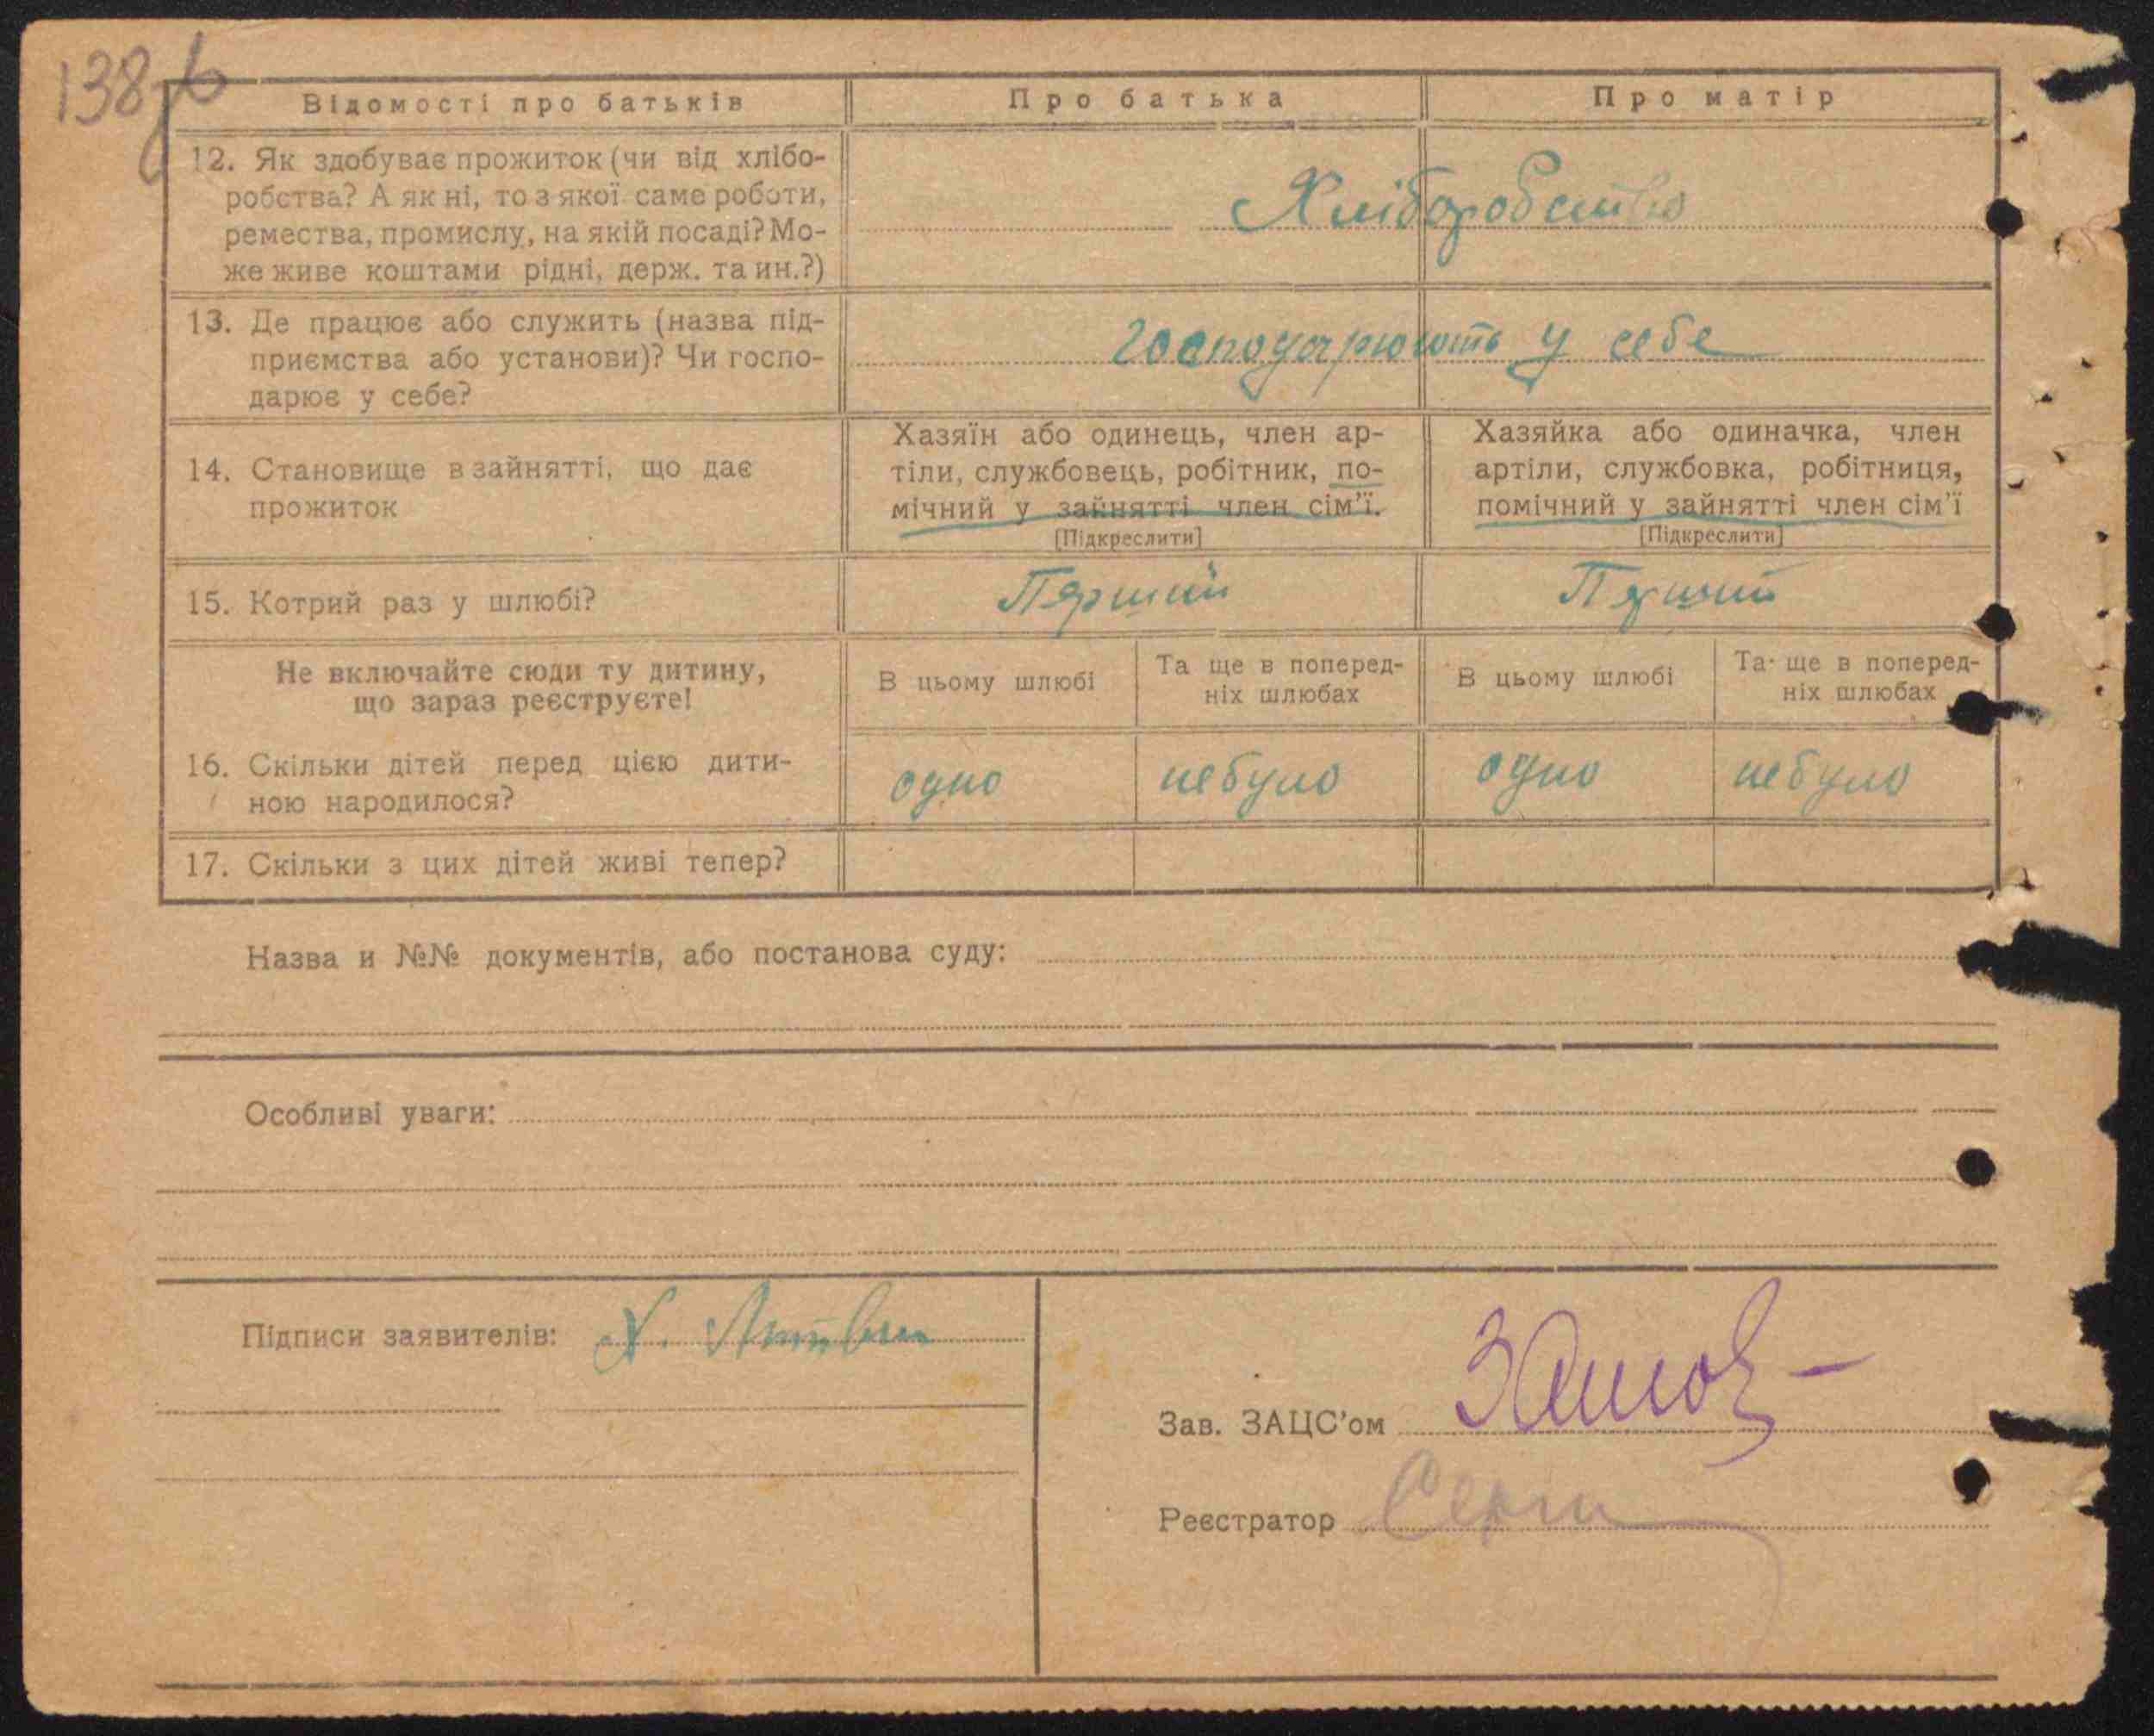 138
Відомості про батьків
Про батька
Про матір
12. Як здобуває прожиток (чи від хлібо-
робства? А як ні, то з якої саме роботи,
ремества, промислу, на якій посаді? Мо-
же живе коштами рідні, держ. та ин.?)
Хліборобство
13. Де працює або служить (назва під-
приємства або установи)? Чи госпо-
дарює у себе?
Господарюють у себе
14. Становище в зайнятті, що дає
прожиток
Хазяїн або одинець, член ар-
тіли, службовець, робітник, по-
мічний у зайнятті член сім'ї.
[Підкреслити]
Хазяйка або одиначка, член
артіли, службовка, робітниця,
помічний у зайнятті член сім'ї
[Підкреслити]
15. Котрий раз у шлюбі?
Перший
Перший
Не включайте сюди ту дитину,
що зараз реєструєте!
В цьому шлюбі
Та ще в поперед-
ніх шлюбах
В цьому шлюбі
Та ще в поперед-
ніх шлюбах
16. Скільки дітей перед цією дити-
ною народилося?
одно
небуло
одно
небуло
17. Скільки з цих дітей живі тепер?
Назва и №№ документів, або постанова суду:
Особливі уваги:
Підписи заявителів: Литвин
Зав. ЗАЦС'ом
Реєстратор